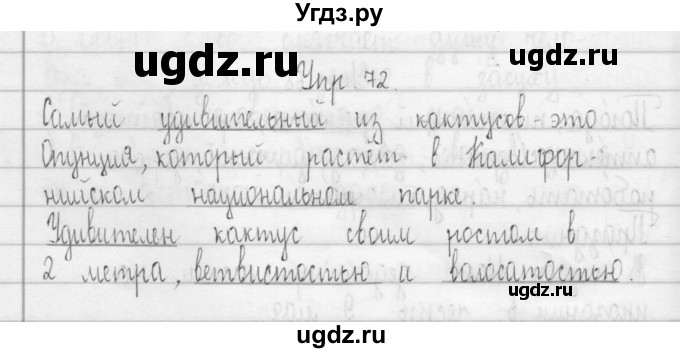 Угдз.ру
ugdz.ru ugdz.ru
Упр. 72.
Самый удивительный из кактусов - это
Опунция, который растёт в Калифор-
нийском национальном парке.
Удивителен кактус своим ростом в
2 метра, ветвистостью и волосатостью.
ugdz.ru
ugdz.ru